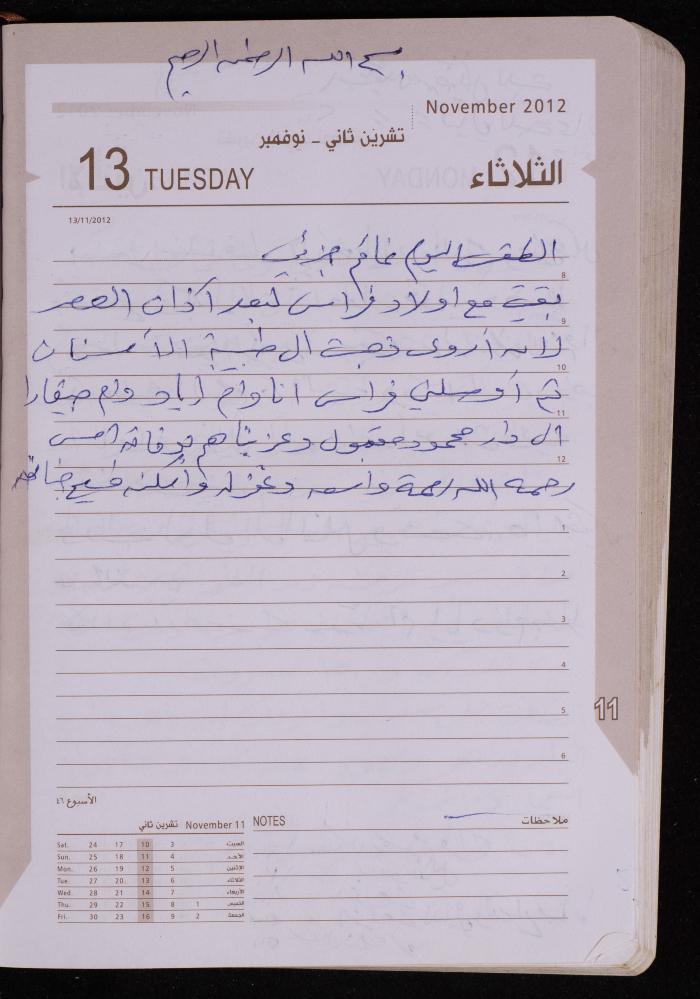 بسم الله الرحمن الرحيم
November 2012
تشرين ثاني - نوفمبر
13 TUESDAY الثلاثاء
13/11/2012
الطقس اليوم غائم جزئي
8
بقيت مع اولاد فراس لبعد آذان العصر
9
لانه أروى ذهبت ال طبيبة الأسنان
10
ثم أوصلني فراس انا وام اياد وام
11
ال دار محمود مقبول وعزيناهم بوفاته امس
12
رحمه الله رحمة واسعه وغفر له وأسكنه فسيح جناته
1
2
3
4
5
6
11
الأسبوع ٤٦
تشرين ثاني November 11
Sat. 24 17 10 3 السبت
Sun. 25 18 11 4 الأحد
Mon. 26 19 12 5 الإثنين
Tue. 27 20 13 6 الثلاثاء
Wed. 28 21 14 7 الأربعاء
Thu. 29 22 15 8 1 الخميس
Fri. 30 23 16 9 2 الجمعة
NOTES ملاحظات